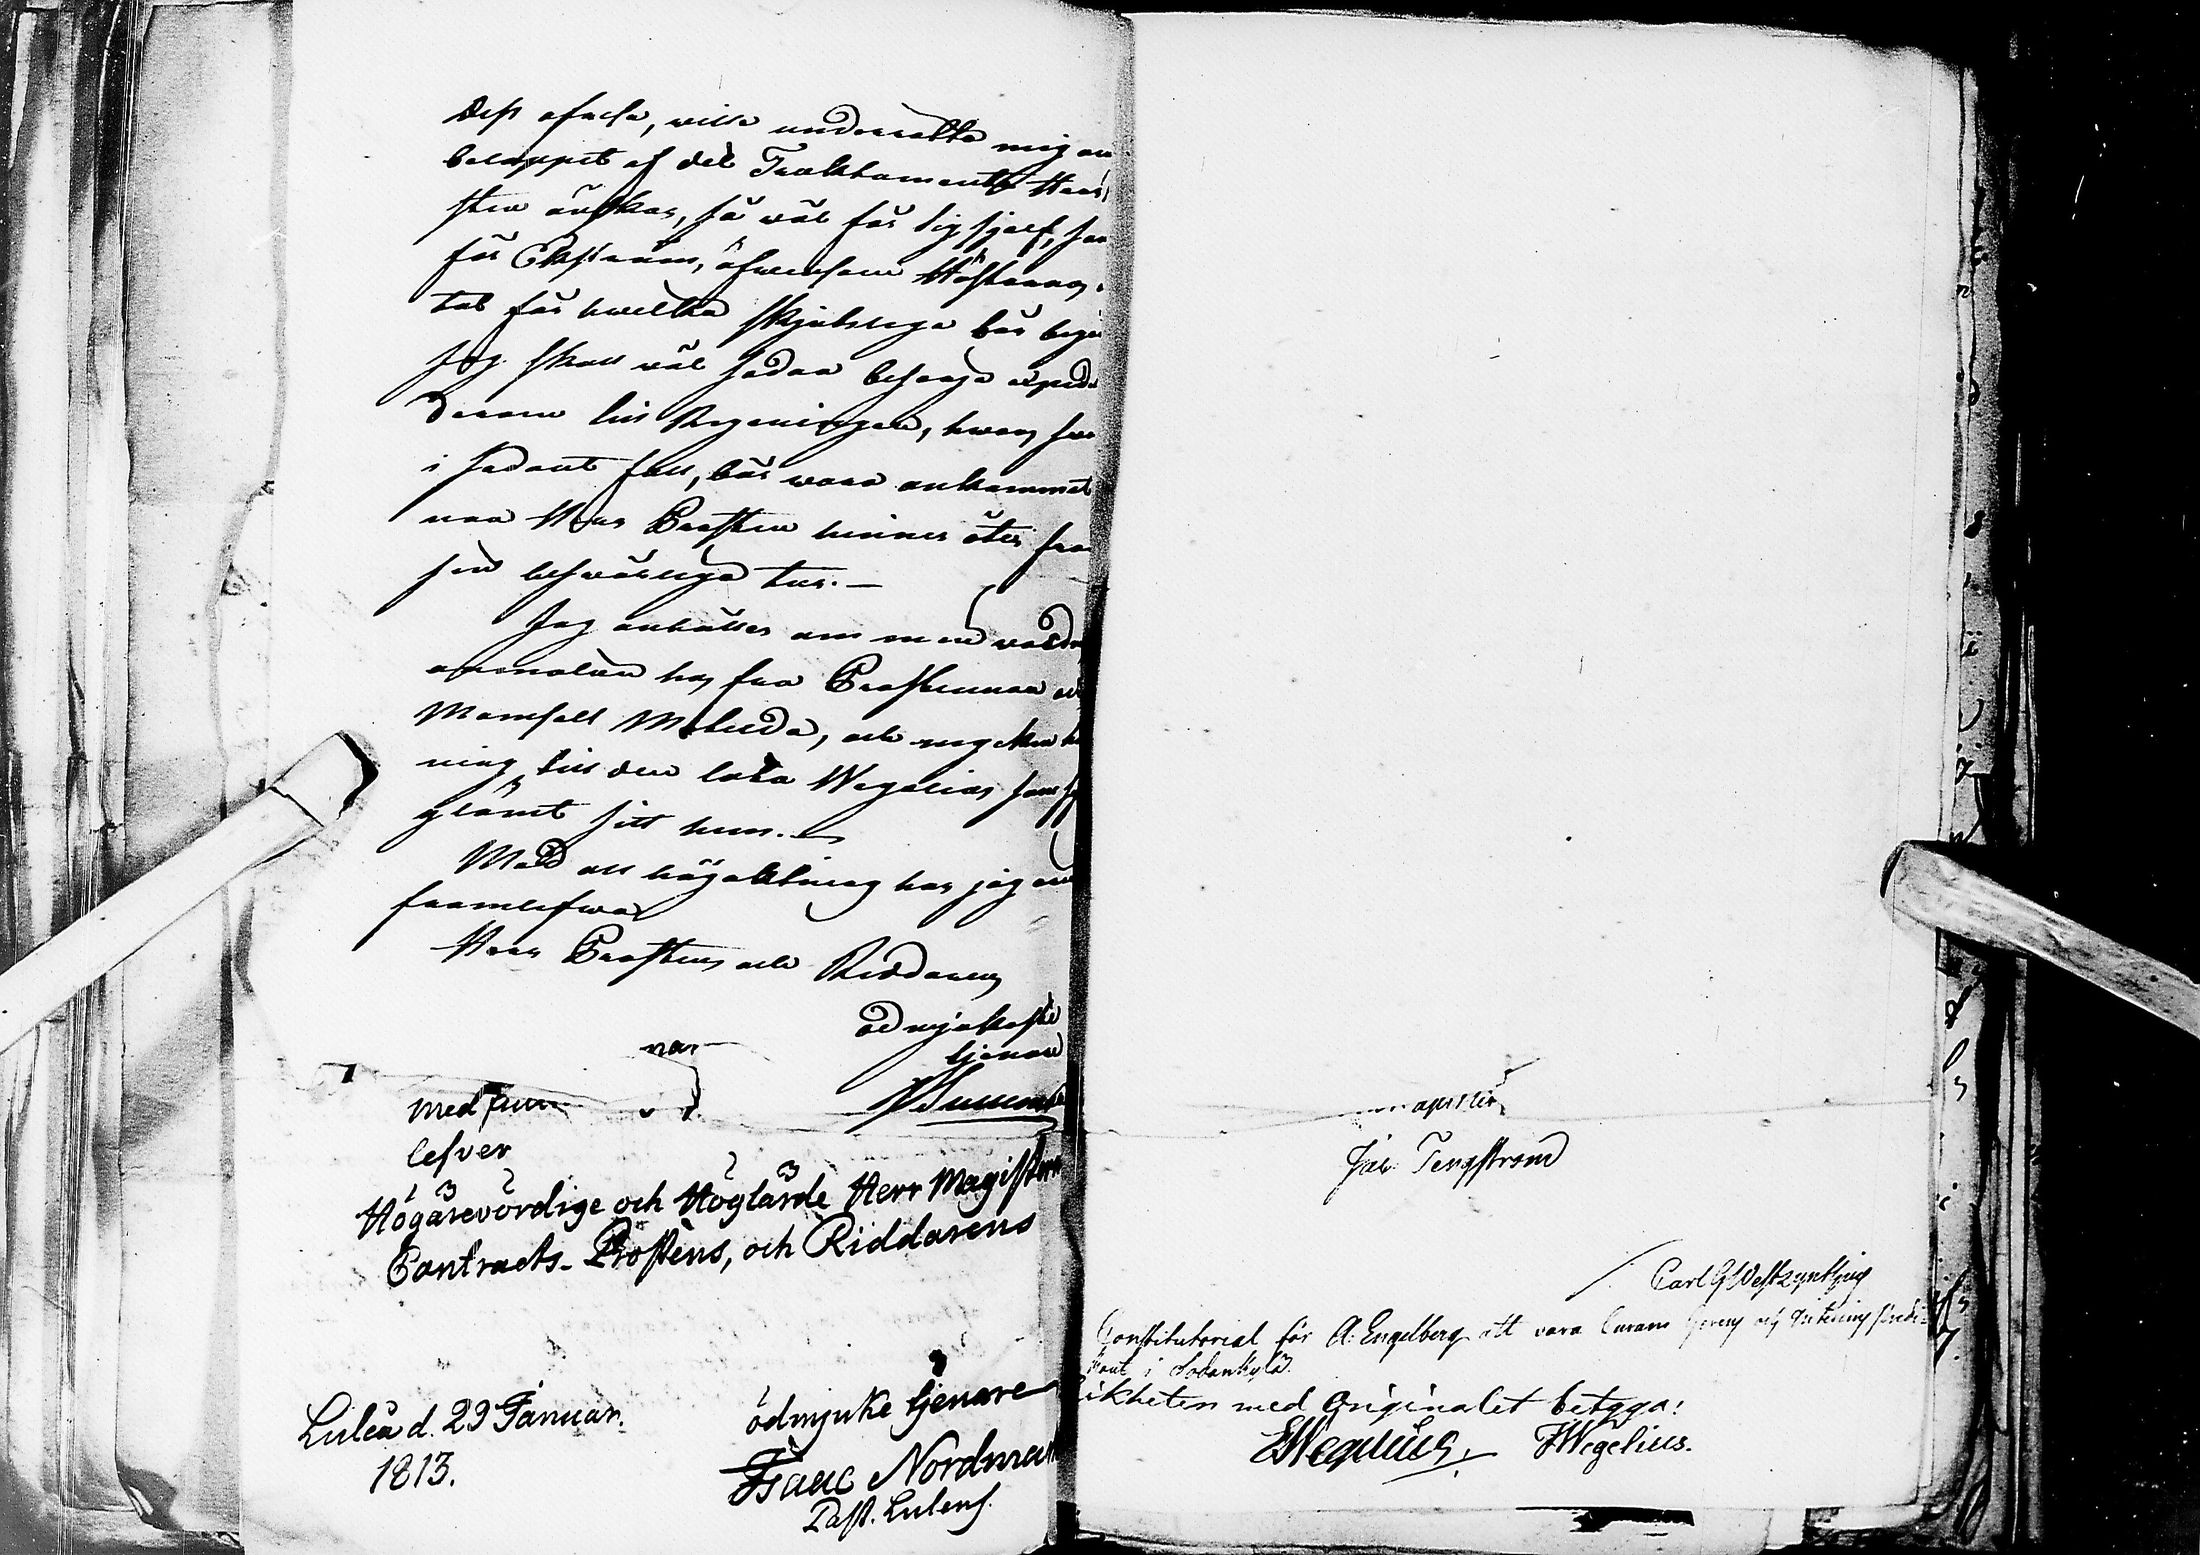 Dess ofrela, wille underrätta mig om
beloppet af det Tracktamente Herr
sten önskar, så wäl för sig sjelf, som
för Ekström, äfwensom Hästarnas
tal för hwilka skjutslega bör begä
Jag skall wäl sedan besörja exped
derom till Regeringen, hwars swar
i sådant fall, bör wara ankommet
nan Herr Prosten hinner åter från
sin beswärliga tur. —
Jag anhåller om min wördna
anmälan hos fru Prostinnan och
Mamsell Mathilda, och mycken hels
ning till den lata Wegelius som
glömt sitt hus. —
Med all högaktning har jag äran
framlefwa
Herr Prostens och Riddarens
ödmjukaste
tjenare
med
lefver
Högärevördige och Höglärde Herr Magisterns
Contracts-Prostens, och Riddarens
Luleå d. 29 Januar.
1813.
ödmjuke tjenare
Isaac Nordman
Past. Lulens.
Jac. Tengström
Carl G Westzynthius
Constitutorial för A. Engelberg att vara Curam gerens och predi-
kant i Sodankylä.
ikheten med Originalet betyga:
EWegelius. JWegelius.